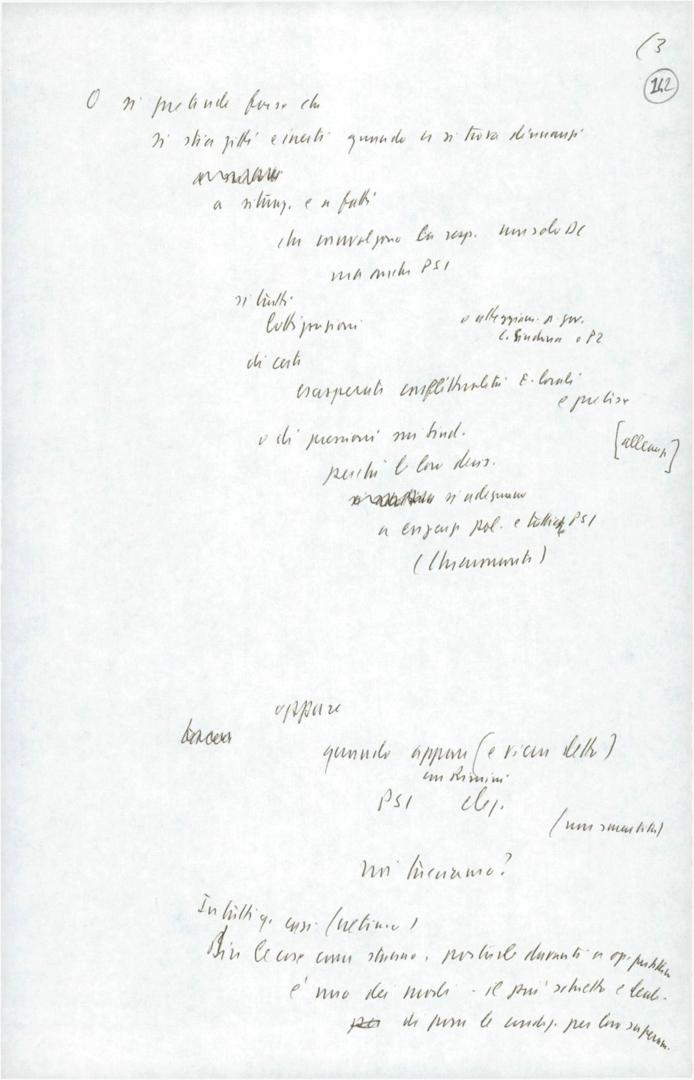 (3
142
O si pretende forse che
si stia zitti e inerti quando ci si trova dinnanzi
a situaz. e a fatti
che coinvolgono la resp. non solo DC
ma anche PSI
si tratti
Lottizzazioni
o atteggiam. di gov.
C. Sindona o P2
di certi
esasperati conflittualità E. locali
e pretese
o di pressioni sui
[alleanze]
perché le loro decis.
si adeguino
a esigenze pol. e tattiche PSI
oppure
quando appare (e viene detto)
con Rimini
PSI
(non smentita)
noi tacciamo?
In tutti q. casi (
Dire le cose come stanno, porterle davanti a op. pubblica
è uno dei modi - il più schietto e leale -
di porre le condiz. per loro superam.